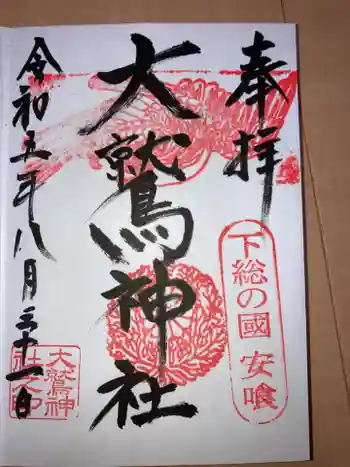 奉拝
下総の國 安喰
大鷲神社
大鷲神
社之印
令和五年八月三十一日